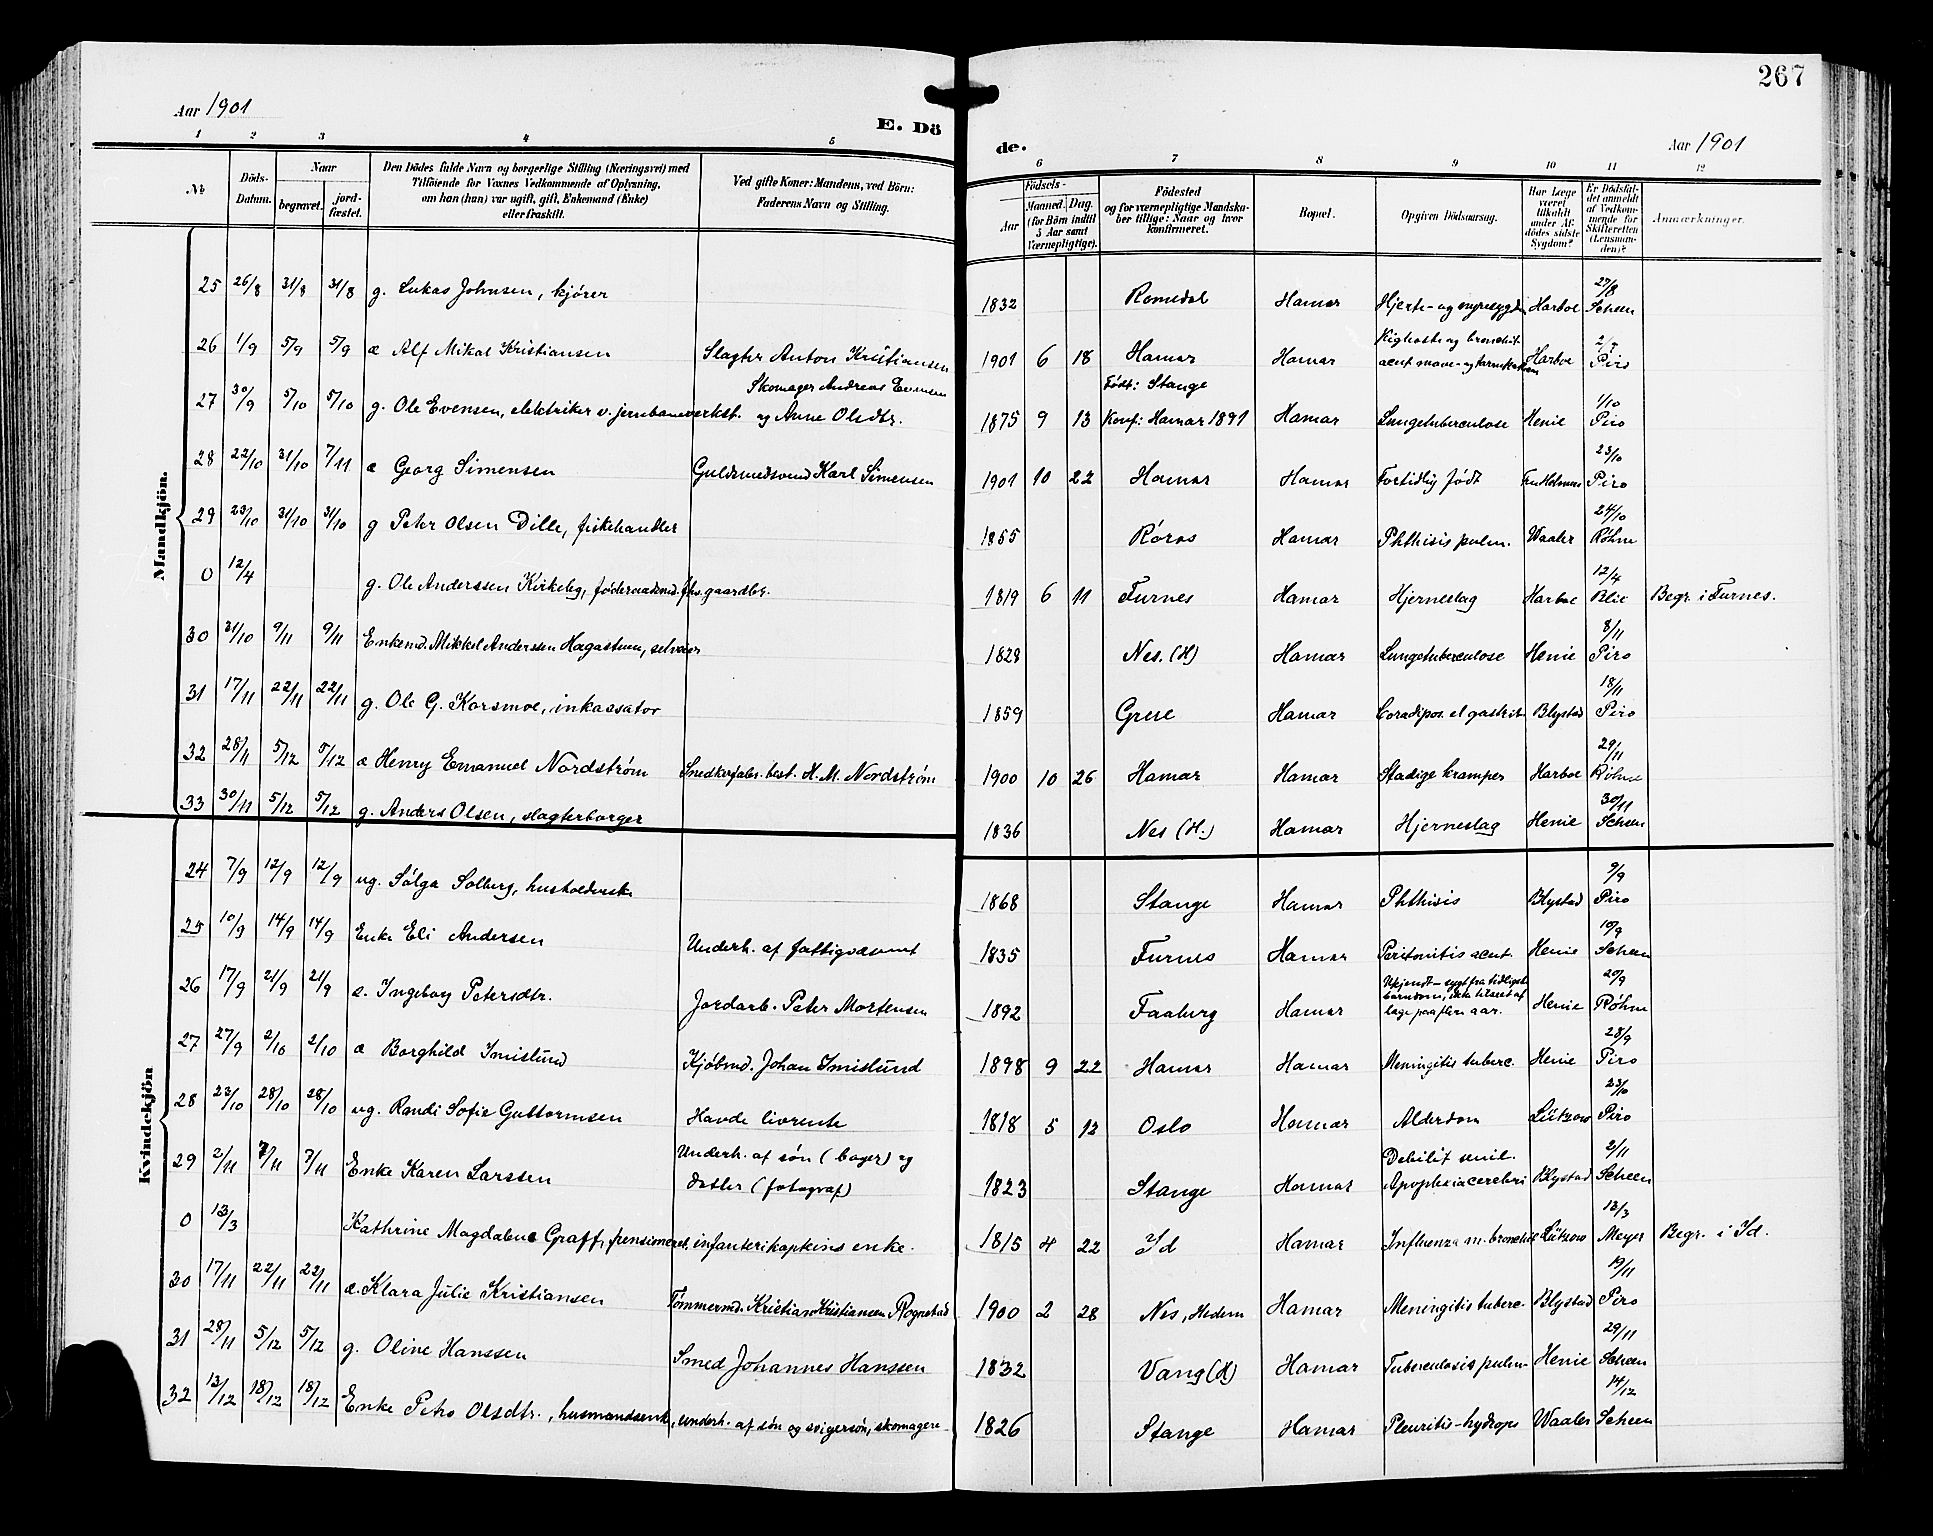 267
Aar 1901
E. Dö
de.
Aar 1901
1 2 3 4 5 6 7 8 9 10 11 12
№ Döds-Datum. Naar begravet. jord-fæstet. Den Dödes fulde Navn og borgerlige Stilling (Næringsvei) med Tilföiende for Voxnes Vedkommende af Oplysning, om han (hun) var ugift, gift, Enkemand (Enke) eller fraskilt. Ved gifte Koner: Mandens, ved Börn: Faderens Navn og Stilling. Födsels- Aar Maaned. Dag. (for Börn indtil 5 Aar samt Værnepligtige). Födested og for værnepligtige Mandskaber tillige: Naar og hvor konfirmeret. Bopæl. Opgiven Dödsaarsag. Har Læge været tilkaldt under Afdödes sidste Sygdom? Er Dödsfaldet anmeldt af Vedkommende for Skifteretten (Lensmanden)? Anmærkninger.
Mandkjön.
25 26/8 31/8 31/8 g. Lukas Johnsen, kjører 1832 Romedal Hamar Hjerte- og nyresygd. Harboe 27/8 Scheen
26 1/9 5/9 5/9 æ Alf Mikal Kristiansen Slagter Anton Kristiansen 1901 6 18 Hamar Hamar Kighoste og bronchit acut mave- og Harboe Piro
27 30/9 5/10 5/10 g. Ole Evensen, elektriker v. jernbaneverkst. Skomager Andreas Evensen og Anne Olsdtr. 1875 9 13 Født: Stange Konf: Hamar 1891 Hamar Lungetuberculose Henie 1/10 Piro
28 22/10 31/10 7/11 æ Georg Simensen Guldsmedsvend Karl Simensen 1901 10 22 Hamar Hamar Fortidlig født 23/10 Piro
29 23/10 31/10 31/10 g Peter Olsen Dille, fiskehandler 1855 Røros Hamar Phthisis pulm. Waaler 24/10 Røhne
0 12/4 g. Ole Anderssen Kirkelig, føderaadsmd. fhv. gaardbr. 1819 6 11 Furnes Hamar Hjerneslag Harboe 12/4 Blic Begr. i Furnes.
30 31/10 9/11 9/11 Enkemd. Mikkel Anderssen Hagastuen, selveier 1828 Nes. (H) Hamar Lungetuberculose Henie 8/11 Piro
31 17/11 22/11 22/11 g. Ole G. Korsmoe, inkassator 1859 Grue Hamar Coradipos. et gastrit Blystad 18/11 Piro
32 28/11 5/12 5/12 æ Henry Emanuel Nordstrøm Snedkerfabr. best. H. M. Nordstrøm 1900 10 26 Hamar Hamar Stadige kramper Harboe 29/11 Røhne
33 30/11 5/12 5/12 g. Anders Olsen, slagterborger 1836 Nes (H.) Hamar Hjerneslag Henie 30/11 Scheen
Kvindekjön
24 7/9 12/9 12/9 ug. Sølga Solberg, husholderske 1868 Stange Hamar Phthisis Blystad 9/9 Piro
25 10/9 14/9 14/9 Enke Eli Andersen Underh. af fattigvæsenet 1835 Furnes Hamar Peritonitis acut. Henie 10/9 Scheen
26 17/9 21/9 21/9 æ. Ingeborg Petersdtr. Jordarb. Peter Mortensen 1892 Faaberg Hamar Ukjendt – sygt fra tidligste barndom, ikke tilseet af læge paa flere aar. Henie 20/9 Røhne
27 27/9 2/10 2/10 æ Borghild Imislund Kjøbmd. Johan Imislund 1898 9 22 Hamar Hamar Meningitis tuberc. Henie 28/9 Piro
28 23/10 28/10 28/10 ug. Randi Sofie Guttormsen Havde livrente 1818 5 12 Oslo Hamar Alderdom Lützow 23/10 Piro
29 2/11 7/11 7/11 Enke Karen Larssen Underh. af søn (bager) og datter (fotograf) 1823 Stange Hamar Debilit senil. Apoplexia cerebri Blystad 2/11 Scheen
0 13/3 Kathrine Magdalene Graff, pensioneret infanterikapteins enke. 1815 4 22 Id Hamar Influenza m. bronchit Lützow 13/3 Meyer Begr. i Id.
30 17/11 22/11 22/11 æ. Klara Julie Kristiansen Tømmermd. Kristian Kristiansen Rognstad 1900 2 28 Nes, Hedem Hamar Meningitis tuberc. Blystad 19/11 Piro
31 28/11 5/12 5/12 g. Oline Hanssen Smed Johannes Hanssen 1832 Vang (H) Hamar Tuberculosis pulm. Henie 29/11 Scheen
32 13/12 18/12 18/12 Enke Petro Olsdtr., husmandsenke, underh. af søn og svigersøn, skomagere 1826 Stange Hamar Pleuritis-hydrops Waaler 14/12 Scheen